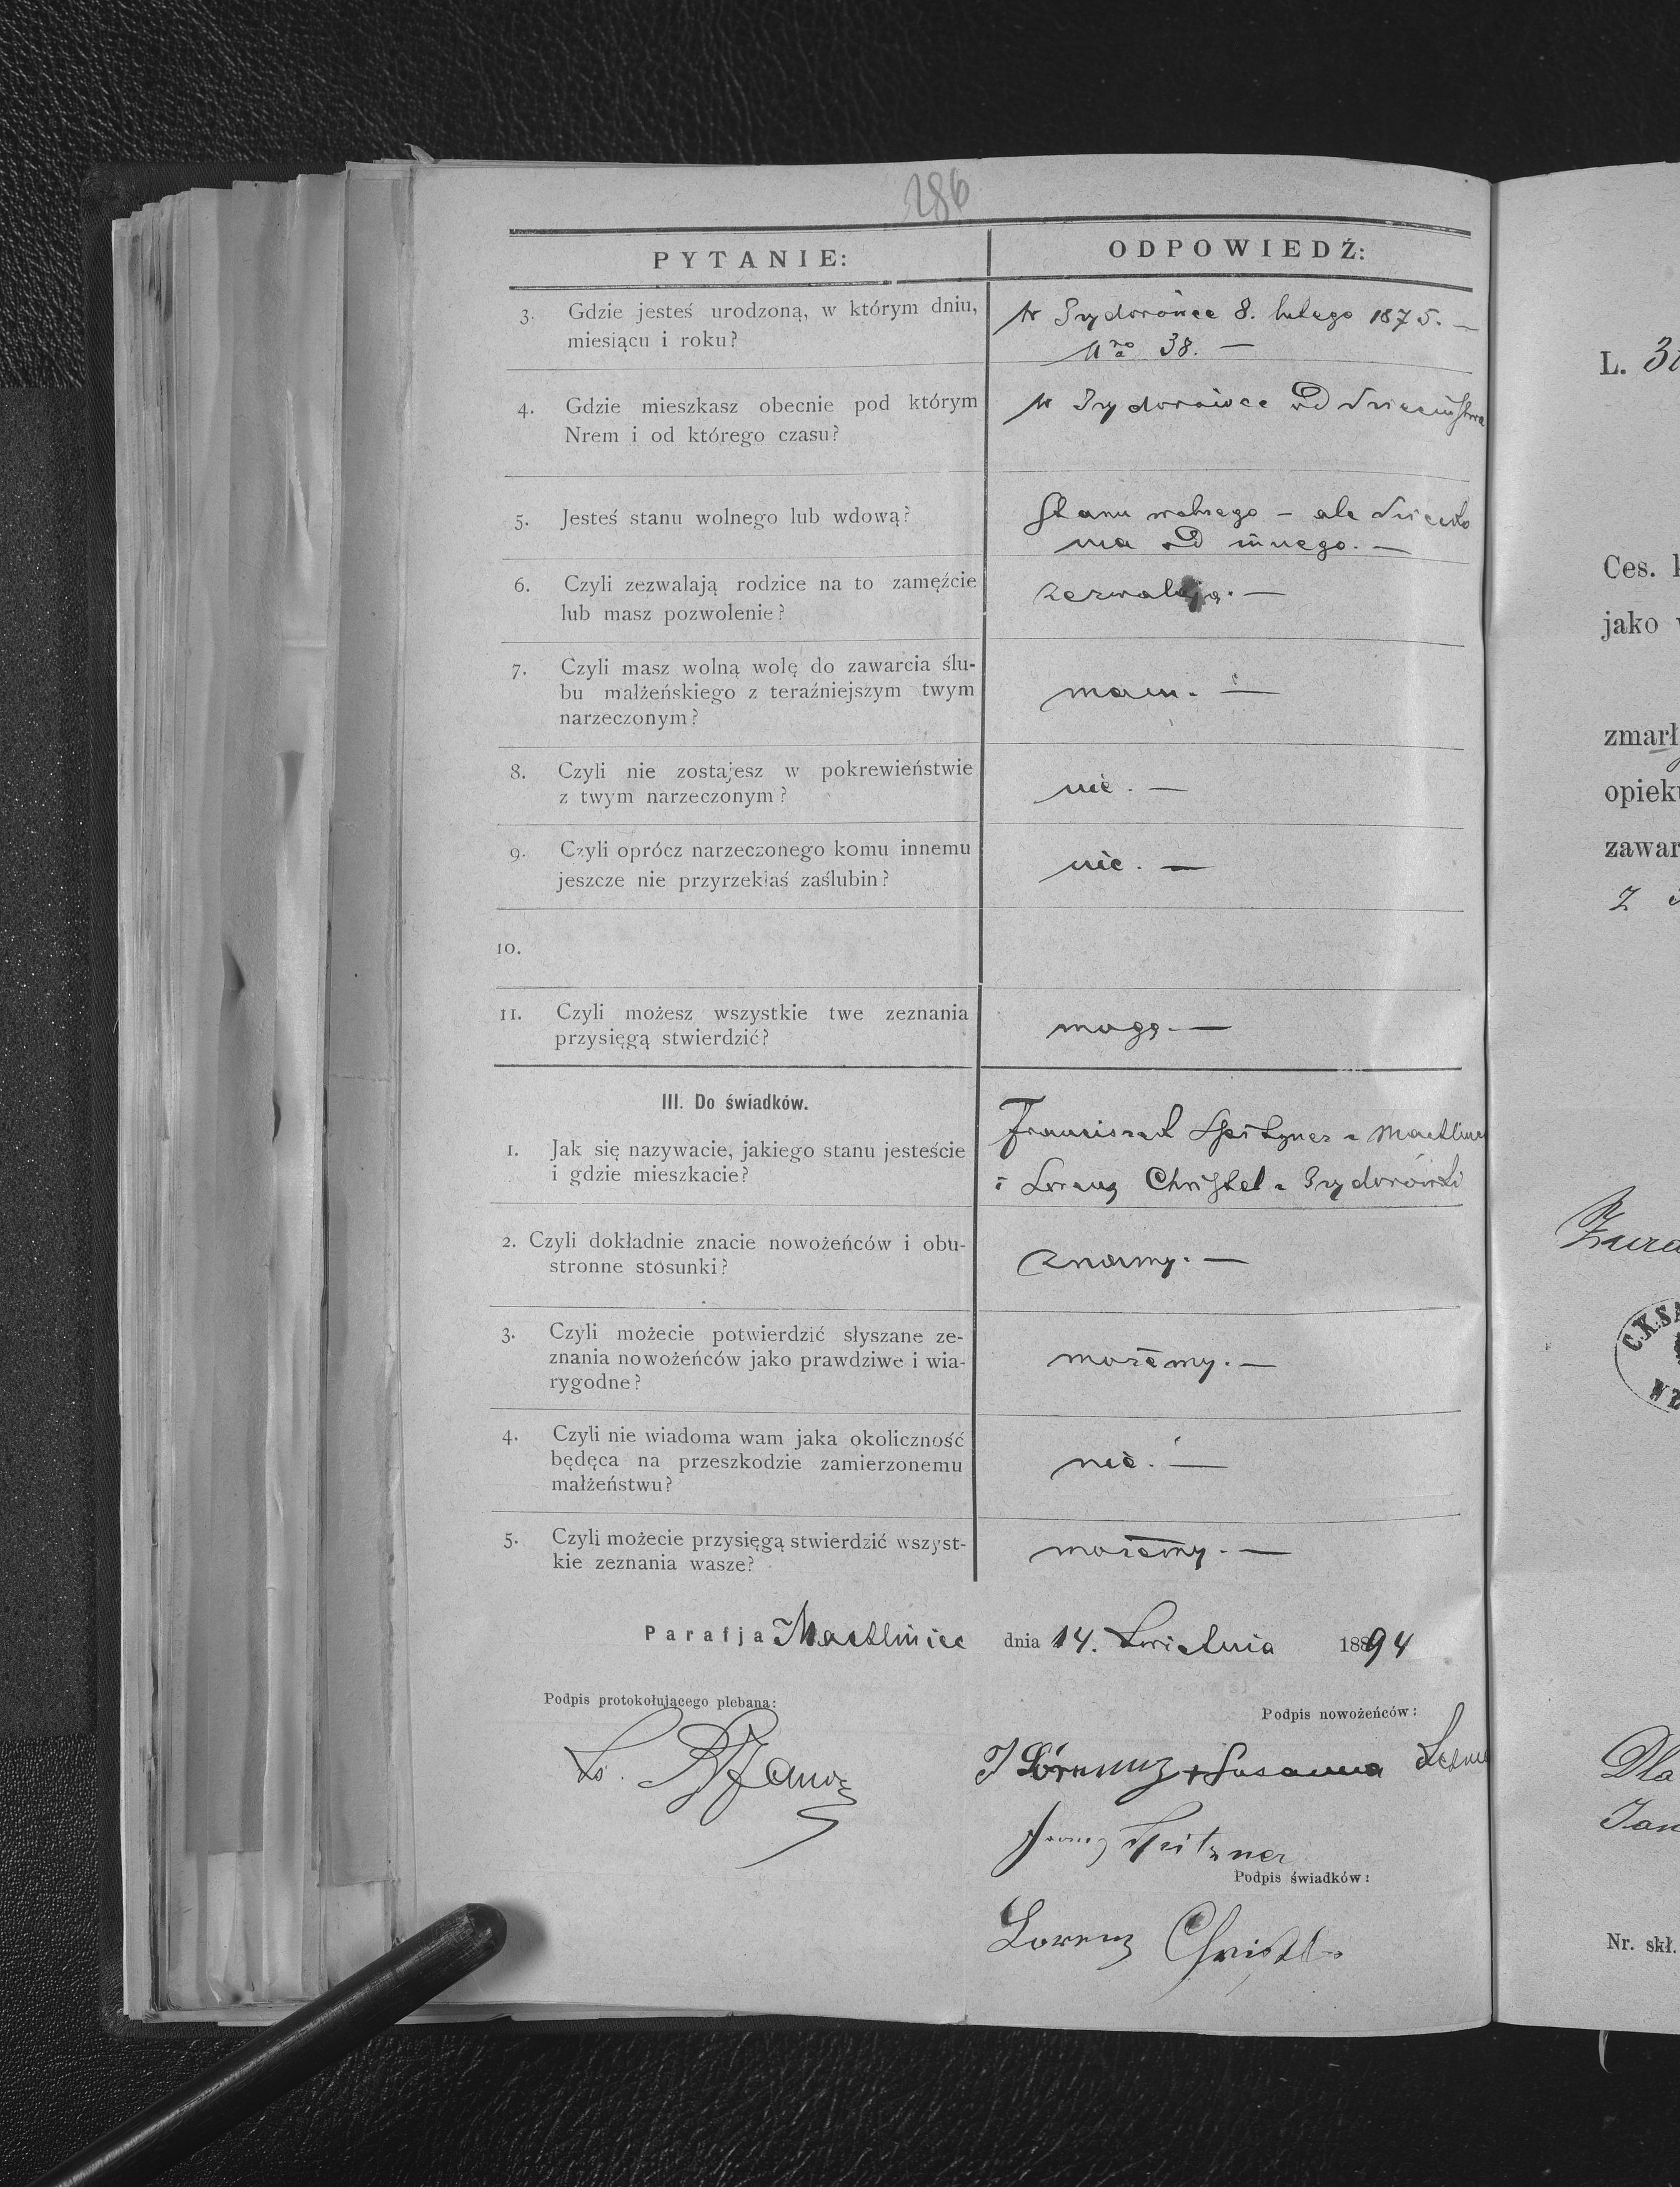 286
PYTANIE:
ODPOWIEDŹ:
3. Gdzie jesteś urodzoną, w którym dniu,
miesiącu i roku?
w Sydorówce 8. lutego 1875. —
Nro 38. —
4. Gdzie mieszkasz obecnie pod którym
Nrem i od którego czasu?
w Sydorówce od dzieciństwa
5. Jesteś stanu wolnego lub wdową?
Stanu wolnego – ale dziecko
ma od innego. —
6. Czyli zezwalają rodzice na to zamęźcie
lub masz pozwolenie?
zezwalają. —
7. Czyli masz wolną wolę do zawarcia ślu-
bu małżeńskiego z teraźniejszym twym
narzeczonym?
mam. —
8. Czyli nie zostajesz w pokrewieństwie
z twym narzeczonym?
nie. —
9. Czyli oprócz narzeczonego komu innemu
jeszcze nie przyrzekłaś zaślubin?
nie. —
10.
11. Czyli możesz wszystkie twe zeznania
przysięgą stwierdzić?
mogę. —
III. Do świadków.
1. Jak się nazywacie, jakiego stanu jesteście
i gdzie mieszkacie?
Franciszek Spitzner z Machliniec
i Lorenz Christel z Sydorówki
2. Czyli dokładnie znacie nowożeńców i obu-
stronne stosunki?
znamy. —
3. Czyli możecie potwierdzić słyszane ze-
znania nowożeńców jako prawdziwe i wia-
rygodne?
możemy. —
4. Czyli nie wiadoma wam jaka okoliczność
będęca na przeszkodzie zamierzonemu
małżeństwu?
nie. —
5. Czyli możecie przysięgą stwierdzić wszyst-
kie zeznania wasze?
możemy. —
Parafja Machliniec dnia 14. kwietnia 1894
Podpis protokołującego plebana:
Podpis nowożeńców:
Lorenz + Susanna
Franz Spitzner
Podpis świadków:
Lorenz Christl
L.
Ces.
jako
zmarł
opieku
zawar
z
C.K.S
Dla
Jan
Nr. skł.